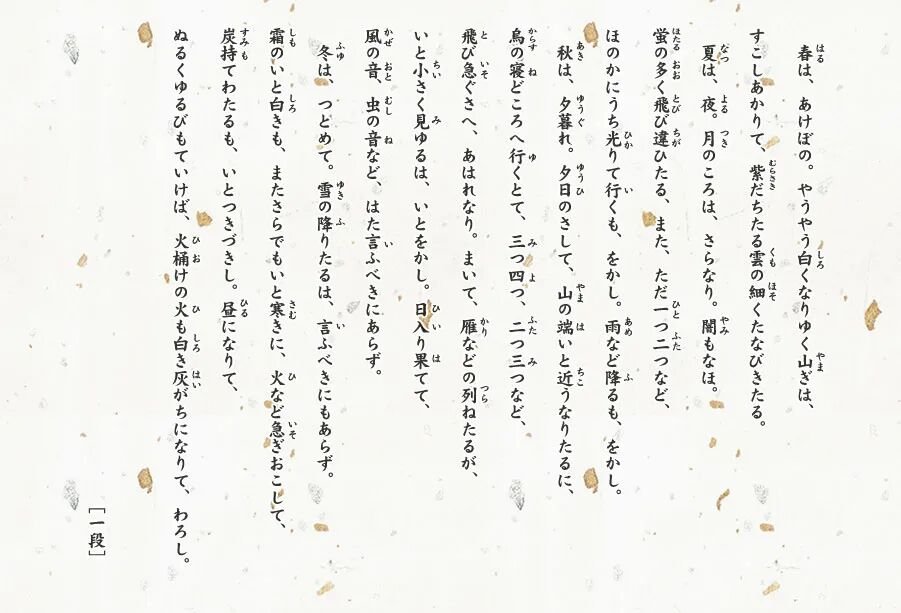 春は、あけぼの。やうやう白くなりゆく山ぎは、
すこしあかりて、紫だちたる雲の細くたなびきたる。
夏は、夜。月のころは、さらなり。闇もなほ。
蛍の多く飛び違ひたる、また、ただ一つ二つなど、
ほのかにうち光りて行くも、をかし。雨など降るも、をかし。
秋は、夕暮れ。夕日のさして、山の端いと近うなりたるに、
烏の寝どころへ行くとて、三つ四つ、二つ三つなど、
飛び急ぐさへ、あはれなり。まいて、雁などの列ねたるが、
いと小さく見ゆるは、いとをかし。日入り果てて、
風の音、虫の音など、はた言ふべきにあらず。
冬は、つとめて。雪の降りたるは、言ふべきにもあらず。
霜のいと白きも、またさらでもいと寒きに、火など急ぎおこして、
炭持てわたるも、いとつきづきし。昼になりて、
ぬるくゆるびもていけば、火桶けの火も白き灰がちになりて、わろし。
［一段］